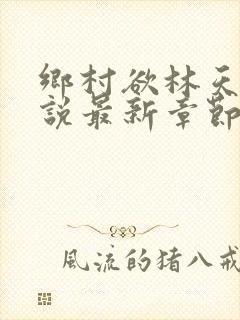 鄉村欲林天
說最新章節
風流的猪八戒